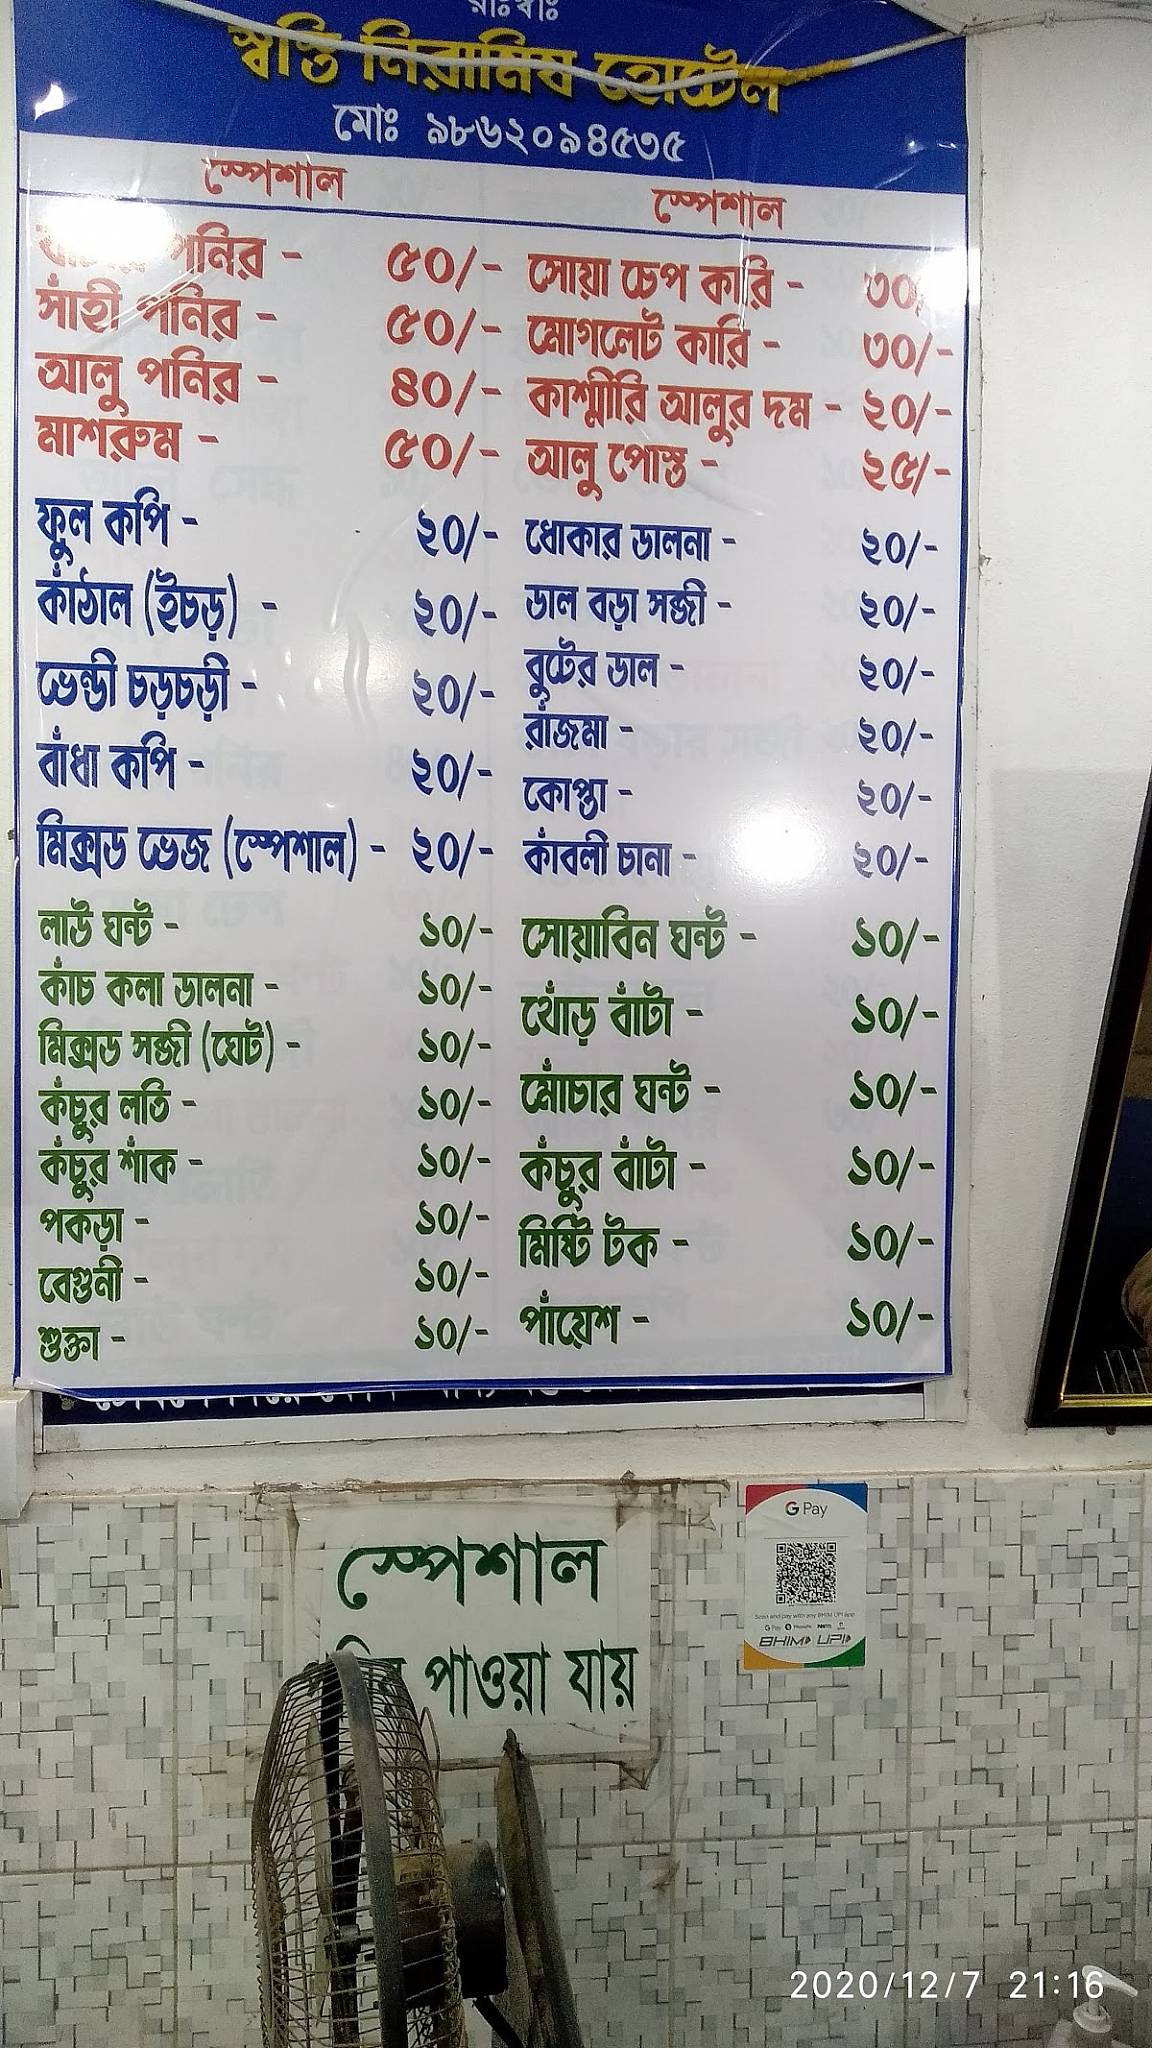 রাঃস্বাঃ
স্বস্তি নিরামিষ হোটেল
মোঃ ৯৮৬২০৯৪৫৩৫
স্পেশাল
পনির - ৫০/-
সাঁহী পনির - ৫০/-
আলু পনির - ৪০/-
মাশরুম - ৫০/-
ফুল কপি - ২০/-
কাঁঠাল (ইচড়) - ২০/-
ভেন্ডী চড়চড়ী - ২০/-
বাঁধা কপি - ২০/-
মিক্সড ভেজ (স্পেশাল) - ২০/-
লাউ ঘন্ট - ১০/-
কাঁচ কলা ডালনা - ১০/-
মিক্সড সব্জী (ঘেট) - ১০/-
কঁচুর লতি - ১০/-
কঁচুর শাঁক - ১০/-
পকড়া - ১০/-
বেগুনী - ১০/-
শুক্তা - ১০/-
স্পেশাল
সোয়া চেপ কারি - ৩০/
মোগলেট কারি - ৩০/-
কাশ্মীরি আলুর দম - ২০/-
আলু পোস্ত - ২৫/-
ধোকার ডালনা - ২০/-
ডাল বড়া সব্জী - ২০/-
বুটের ডাল - ২০/-
রাঁজমা - ২০/-
কোপ্তা - ২০/-
কাঁবলী চানা - ২০/-
সোয়াবিন ঘন্ট - ১০/-
থোঁড় বাঁটা - ১০/-
মোঁচার ঘন্ট - ১০/-
কঁচুর বাঁটা - ১০/-
মিষ্টি টক - ১০/-
পাঁয়েশ - ১০/-
স্পেশাল
পাওয়া যায়
G Pay
Scan and pay with any BHIM UPI app
BHIM UPI
2020/12/7 21:16